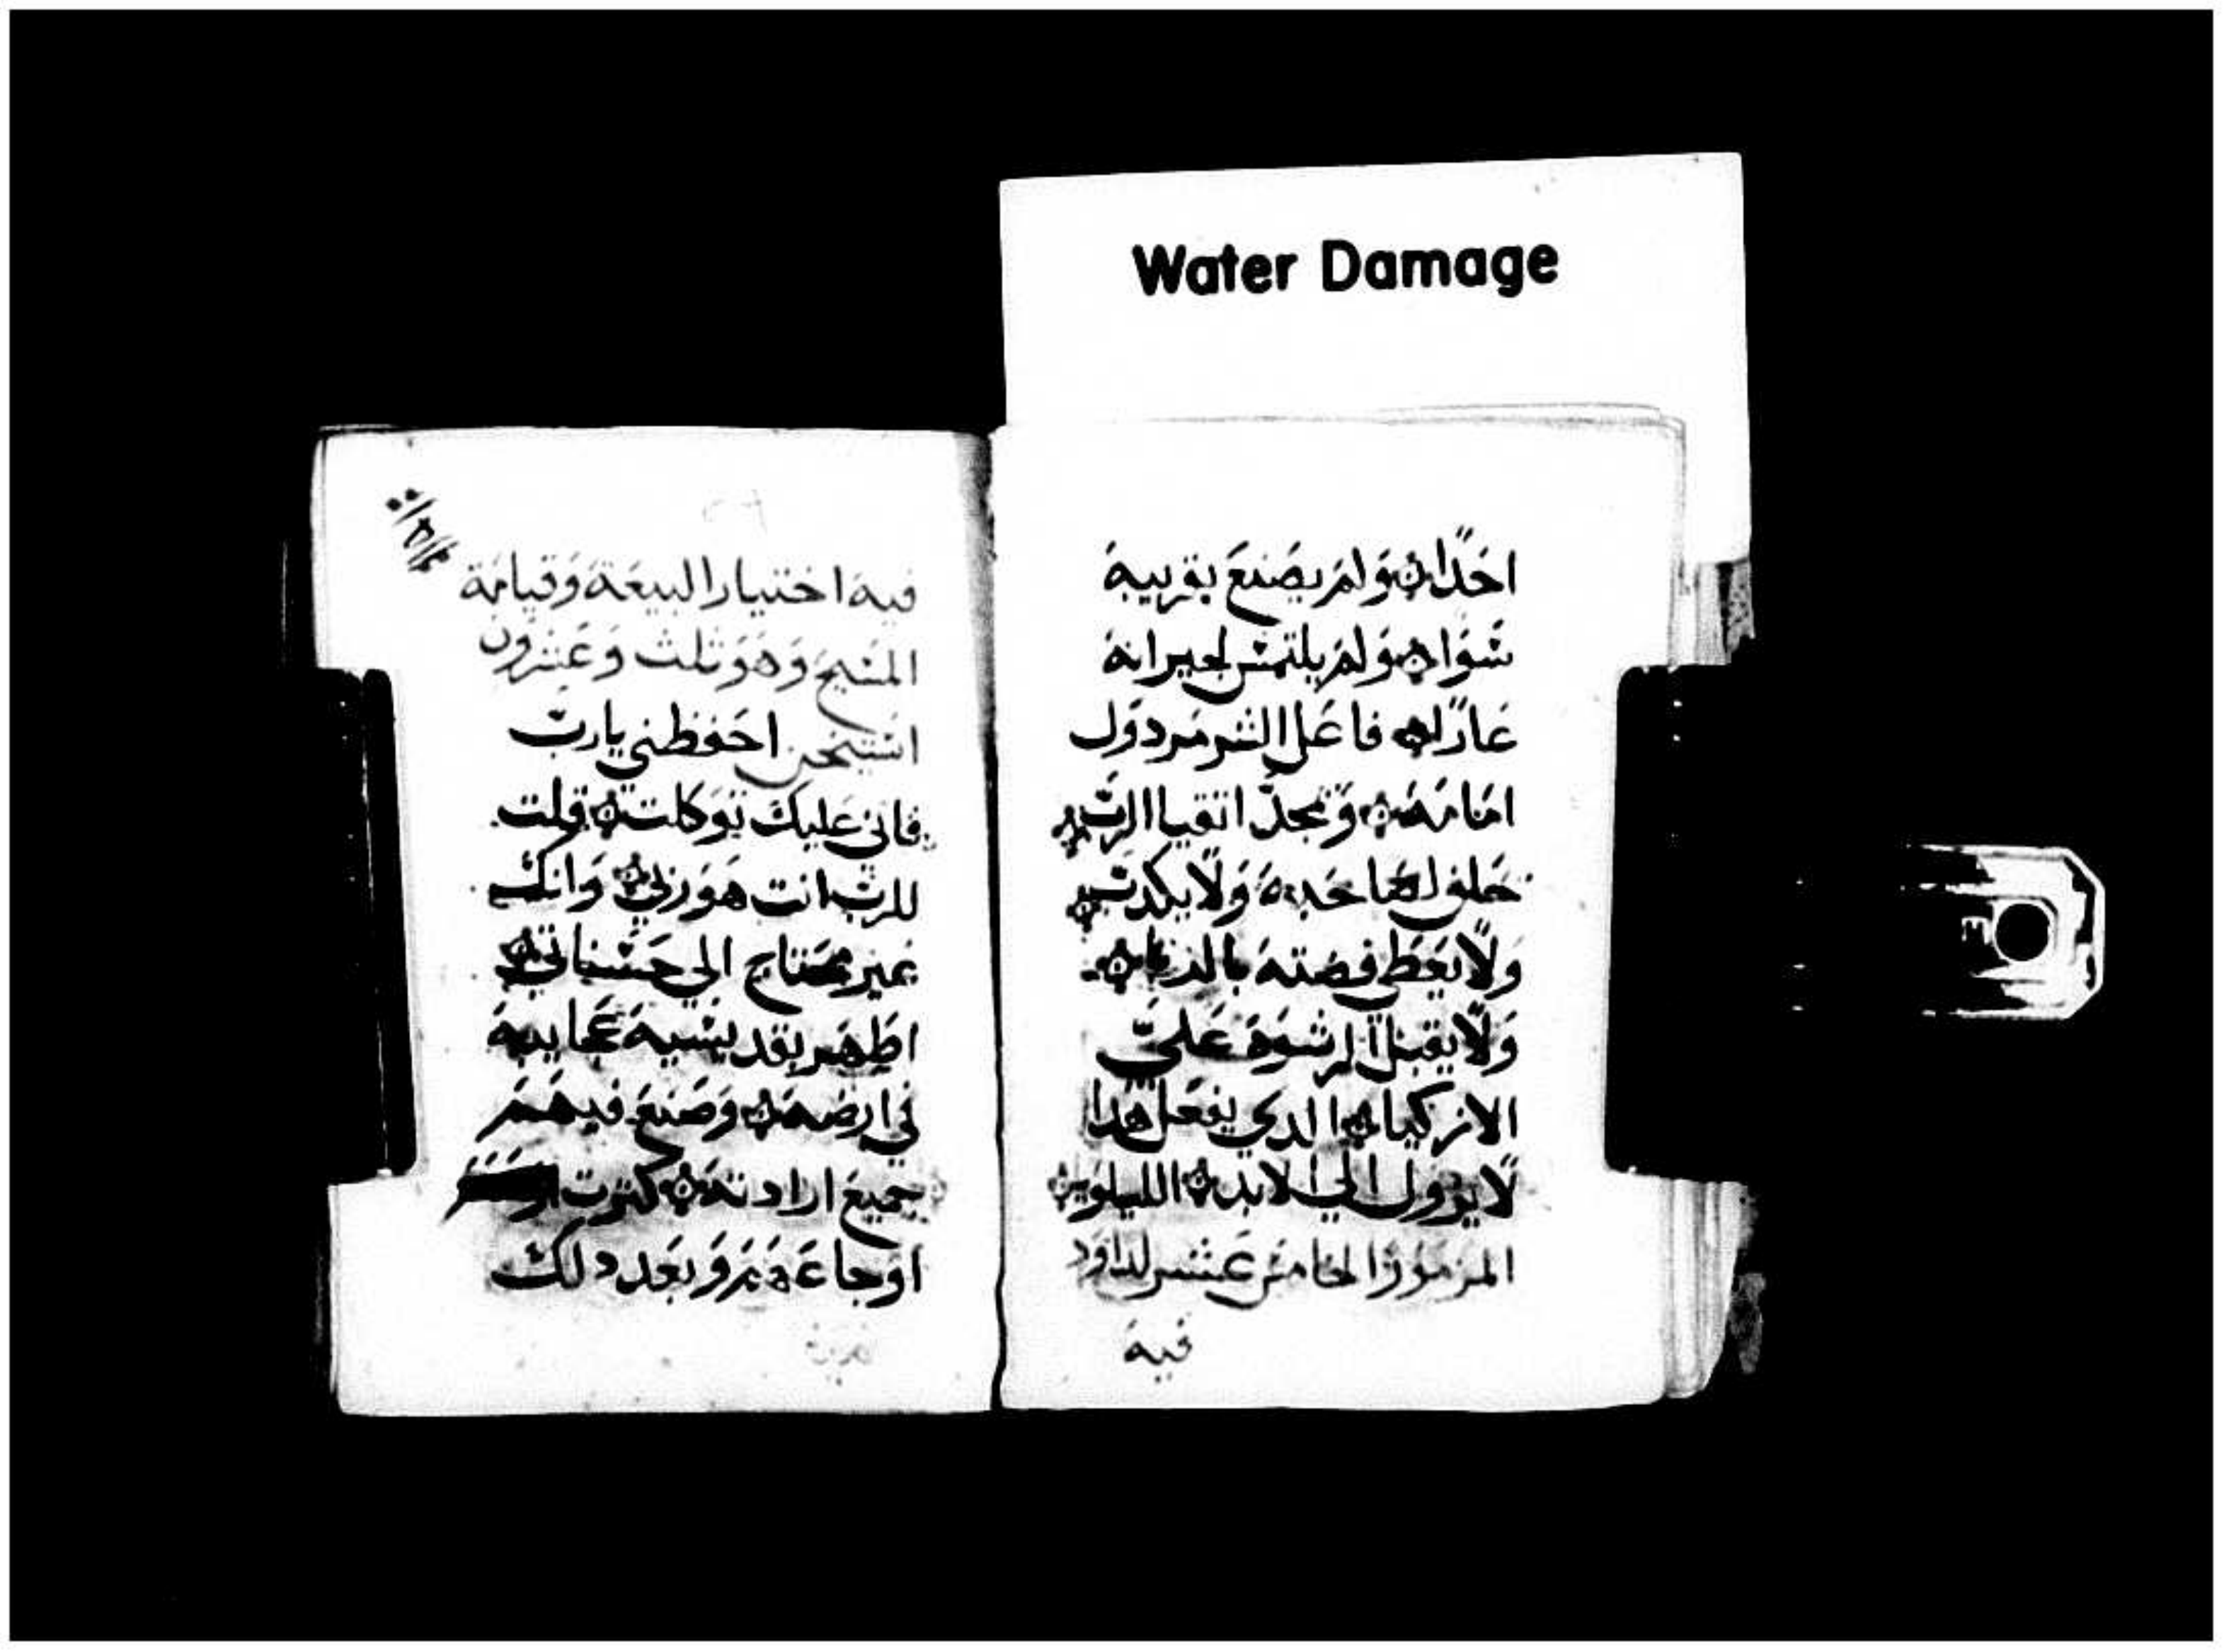 Water Damage
احدًا ۞ ولم يصنع بقريبه
سوا ۞ ولم يلتمس لجيرانه
عارًا ۞ فاعل الشر مردول
امامه ۞ ويمجد اتقيا الرب ۞
ولا يكدب ۞
ولا يعطي فضته بالربا ۞
ولا يقبل الرشوة علي
الازكيا ۞ الدي يفعل هدا
لا يزول الي الابد ۞ الليلويا ۞
المزمور الخامس عشر لداود
فيه
فيه اختيار البيعة وقيامة
المسيح وهو ثلث وعشرون
استيخن احفظني يارب
فاني عليك توكلت ۞ قلت
للرب انت هو ربي ۞ وانك
غير محتاج الي حسناتي ۞
اظهر لقديسيه عجايبه
في ارضه ۞ وصنع فيهم
جميع ارادته ۞ كثرت
اوجاعهم وبعد دلك